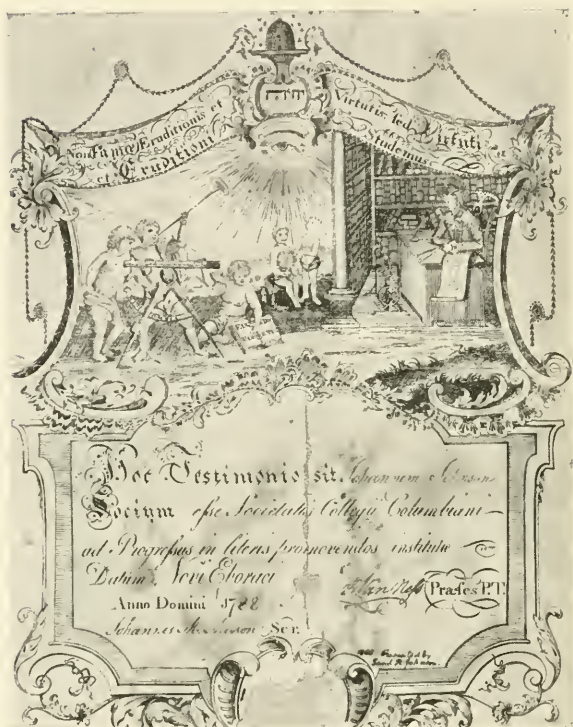 יהוה
Non Famæ Eruditionis et Virtutis sed Virtuti
et Eruditioni Studemus
Hoc Testimonio sit Johannem
Socium esse Societatis Collegii Columbiani
ad Progressus in literis promovendos institutæ
Datum Novi Eboraci
Van Ness Præses P.T.
Anno Domini 1788
Johannes Scr.
Presented by
Saml R. Johnson